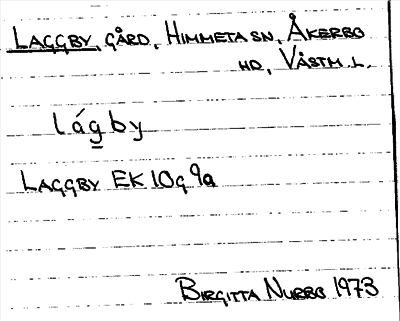 LAGGBY, GÅRD, HIMMETA SN, ÅKERBO
HD, VÄSTM. L.
lág̲by
LAGGBY EK 10g 9a
BIRGITTA NURBO 1973